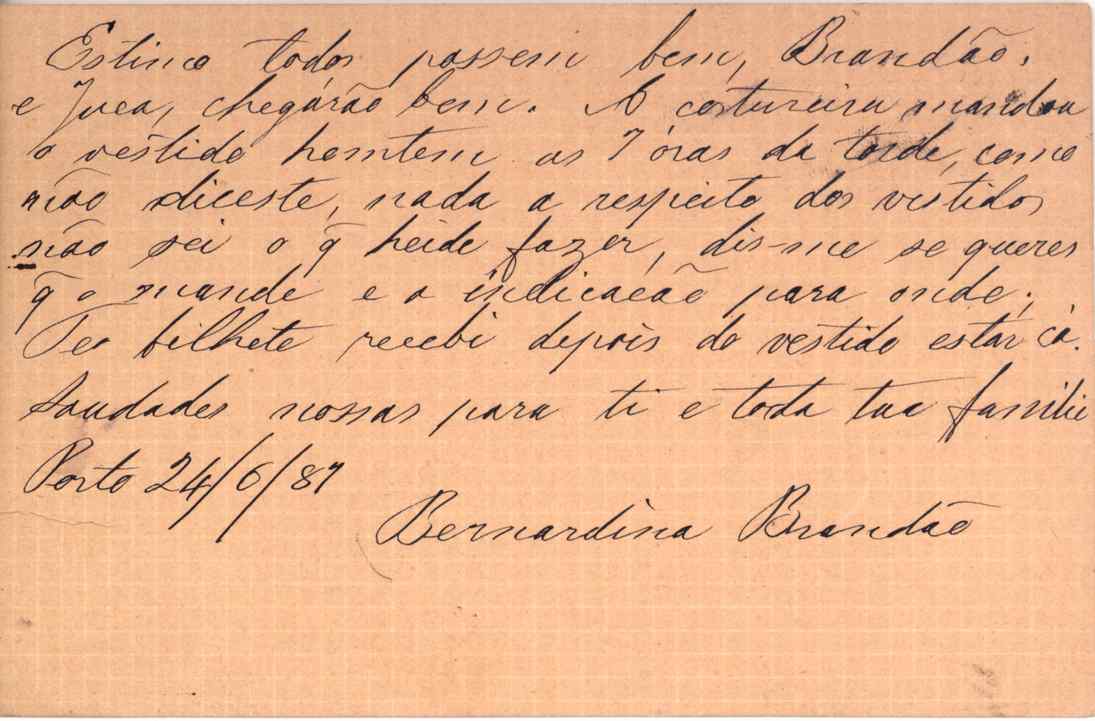 Estimo todos passem bem, Brandão.
e Juca, chegárão bem. A costureira mandou
o vestido hontem as 7 óras da tarde, como
não diceste, nada a respeito dos vestidos
não sei o q̃ heide fazer, dis-me se queres
q̃ o mande e a indicacão para onde;
Teo bilhete recebi depois do vestido estar cá.
Saudades nossas para ti e toda tua familia
Porto 24/6/87
Bernardina Brandão